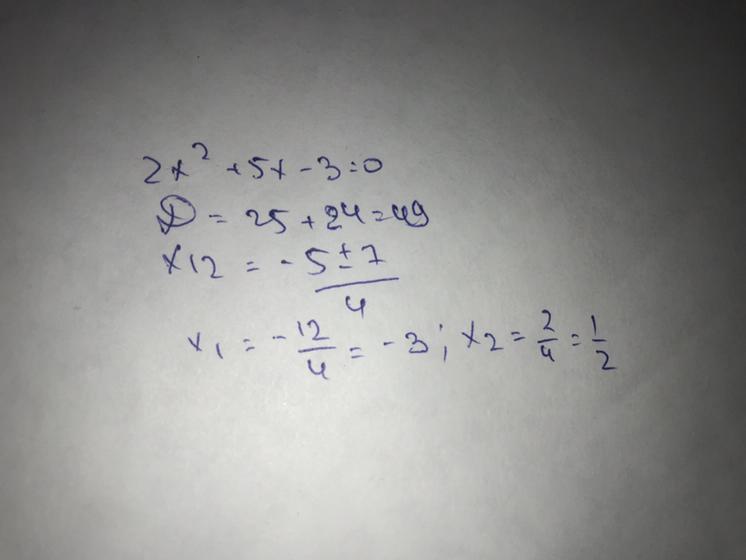 2x² + 5x - 3 = 0
D = 25 + 24 = 49
x12 = -5 ± 7 / 4
x₁ = -12/4 = -3; x2 = 2/4 = 1/2